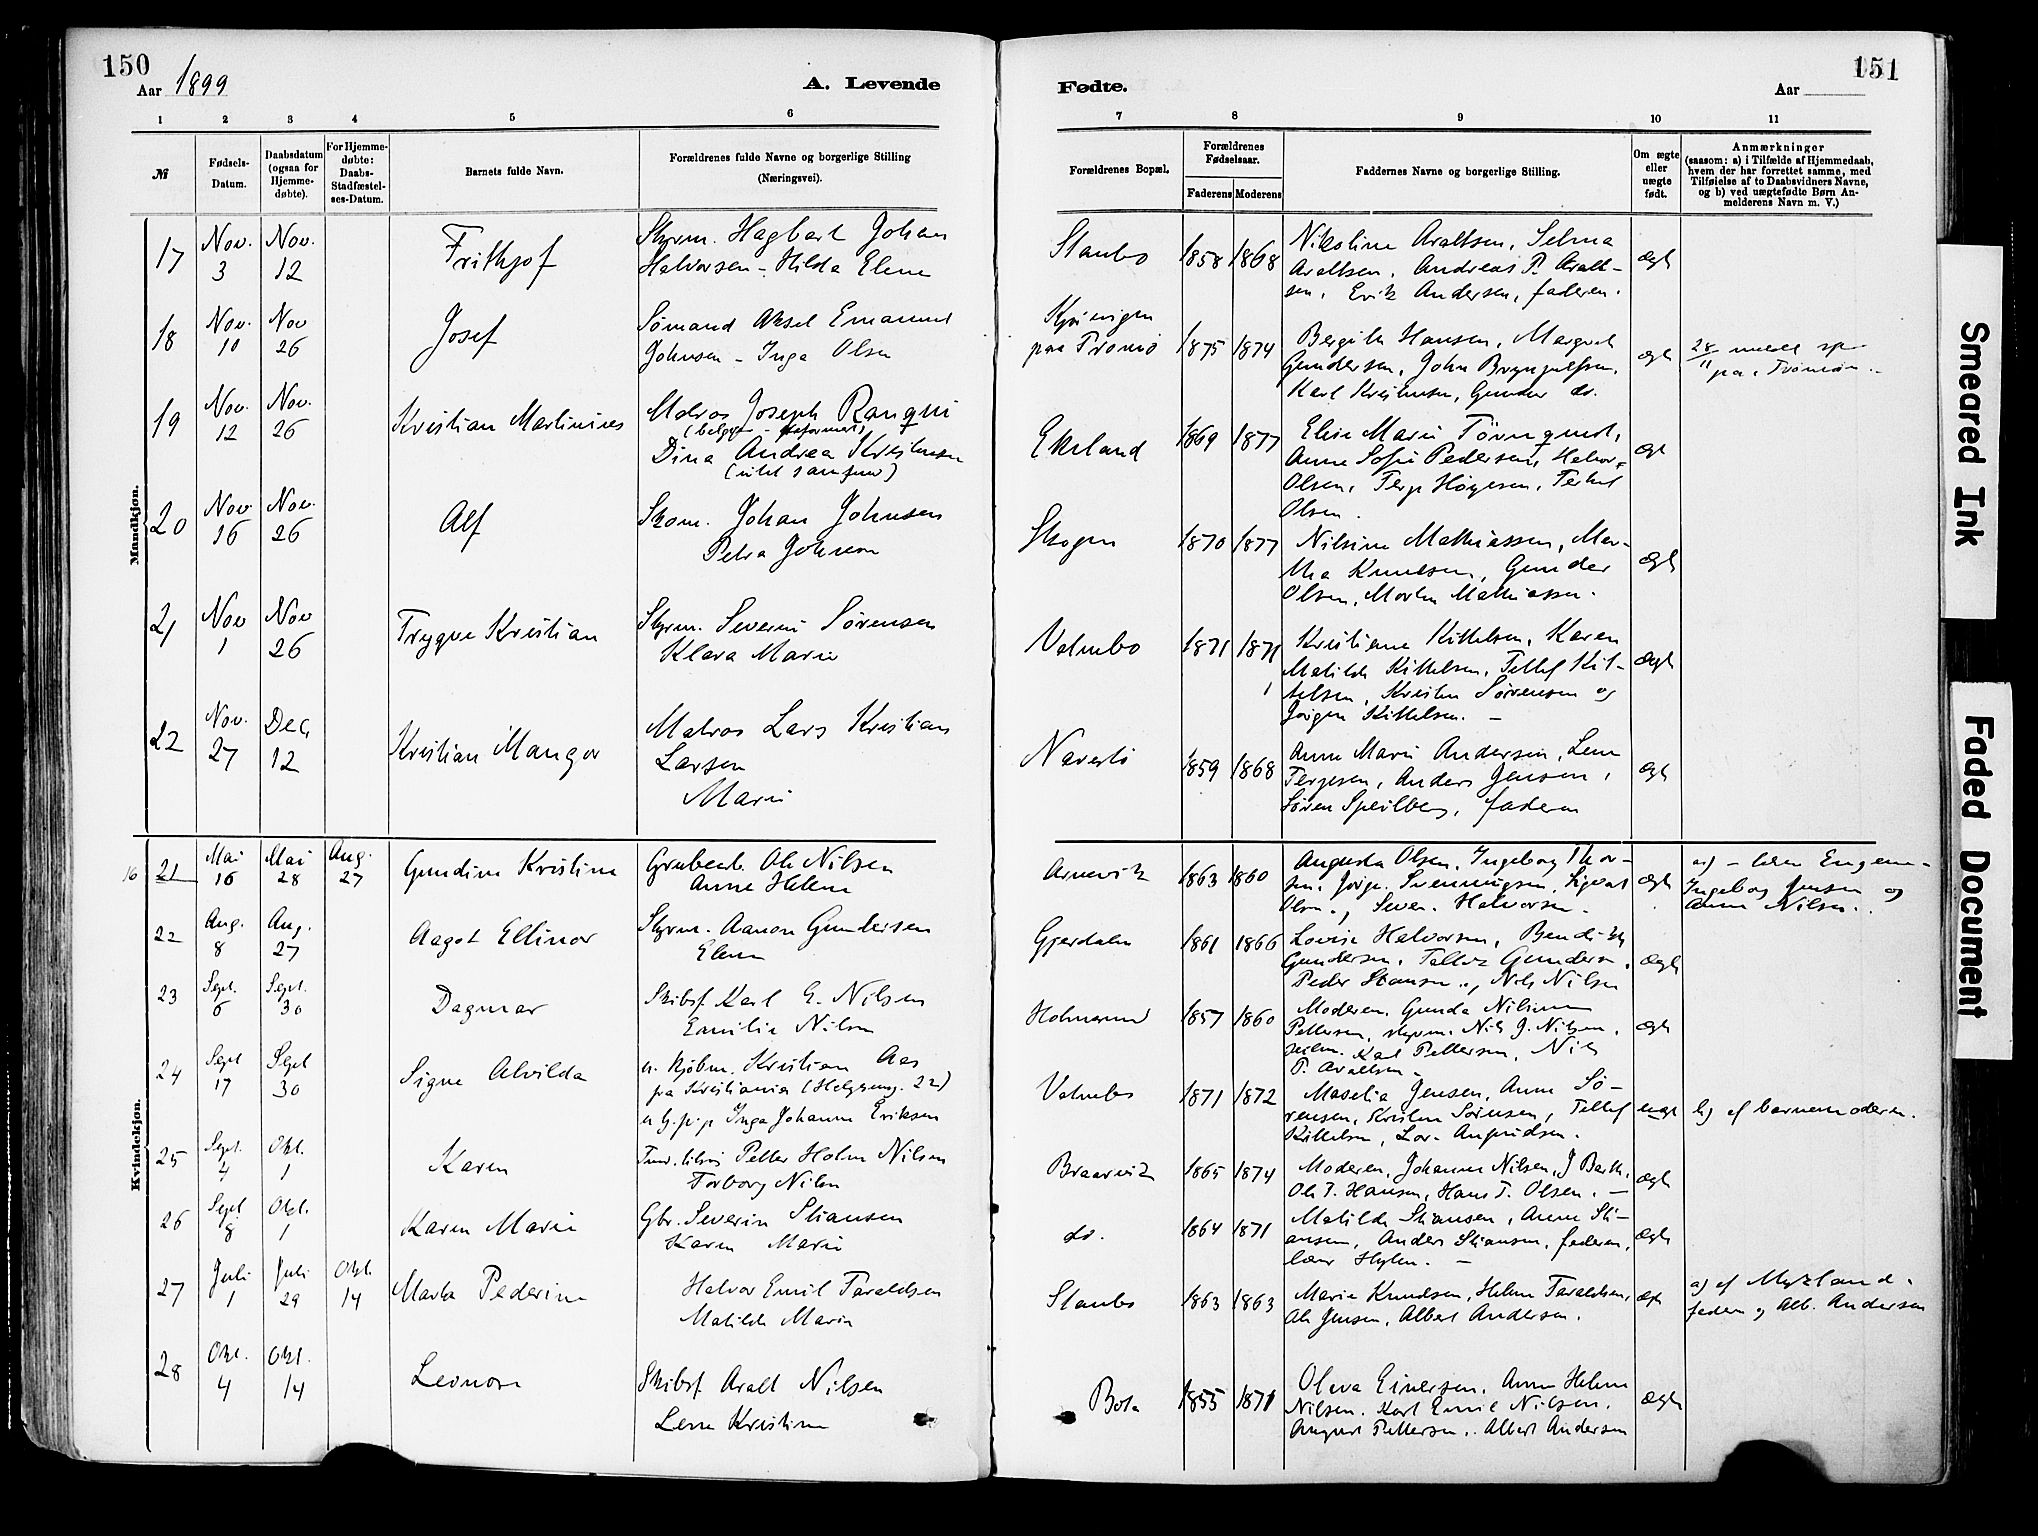 150
Aar 1899
A. Levende
1 2 3 4 5 6
№
Fødsels-
Datum.
Daabsdatum
(ogsaa for
Hjemme-
døbte).
For Hjemme-
døbte:
Daabs-
Stadfæstel-
ses-Datum.
Barnets fulde Navn.
Forældrenes fulde Navne og borgerlige Stilling
(Næringsvei).
Mandkjøn.
17 Nov. 3 Nov. 12 Frithjof
Styrm. Hagbart Johan
Halvorsen - Hilda Elene
18 Nov. 10 Nov 26 Josef
Sømand Aksel Emanuel
Johnsen - Inga Olsen
19 Nov. 12 Nov. 26 Kristian Martinius
Matros Joseph Ranqui
Dina Andrea Kristensen
20 Nov. 16 Nov. 26 Alf
Skom. Johan Johnsen
Petra Johnsen
21 Nov 1 Nov 26 Trygve Kristian
Styrm. Severin Sørensen
Klara Marie
22 Nov. 27 Dec 12 Kristian Mangor
Matros Lars Kristian
Larsen
Marie
Kvindekjøn.
16 21 Mai 16 Mai 28 Aug. 27 Gundine Kristine
Grubearb. Ole Nilsen
Anne Helene
22 Aug. 8 Aug. 27 Aagot Ellinor
Styrm. Aanon Gundersen
Elene
23 Sept. 6 Sept. 30 Dagmar
Skibsf. Karl G. Nilsen
Emilie Nilsen
24 Sept 17 Sept 30 Signe Alvilda
u. kjøbm. Kristian Aas
fra Kristiania (Helgesensg. 22)
u G. p. p Inga Johanne Eriksen
25 Sept. 4 Okt. 1 Karen
Petter Holm Nilsen
Torborg Nilsen
26 Sept 8 Okt. 1 Karen Marie
Gbr. Severin Stiansen
Karen Marie
27 Juli 1 Juli 29 Okt. 14 Marta Pederine
Halvor Emil Taraldsen
Matilde Marie
28 Okt. 4 Okt. 14 Leonore
Skibsf Aralt Nilsen
Lene Kristine
151
Fødte.
Aar
7 8 9 10 11
Forældrenes Bopæl.
Forældrenes
Fødselsaar.
Faderens Moderens
Faddernes Navne og borgerlige Stilling.
Om ægte
eller
uægte
født.
Anmærkninger
(saasom: a) i Tilfælde af Hjemmedaab,
hvem der har forrettet samme, med
Tilføielse af to Daabsvidners Navne,
og b) ved uægtefødte Børn An-
melderens Navn m. V.)
Staubo 1858 1868
Nikoline Araltsen, Selma
Araltsen, Andreas P. Aralt-
sen, Erik Andersen, faderen.
ægte
paa Tromø 1875 1874
Bergith Hansen, Margret
Gundersen, John Brynjulfsen,
Karl Kristensen, Gunder do.
ægte
28/11 meldt sp
pr. i Tromøen.
Ekeland 1869 1877
Elise Marie Törnquist,
Anne Sofie Pedersen, Halvor
Olsen, Terje Högesen, Terkel
Olsen.
ægte
Skogen 1870 1877
Nilsine Mathiassen, Mar-
tha Knudsen, Gunder
Olsen, Morten Mathiassen.
ægte
Valnebo 1871 1871
Kristiane Kittelsen, Karen
Matilde Kittelsen, Tellef Kit-
telsen, Kristen Sørensen og
Jørgen Kittelsen. -
ægte
Naresto 1859 1868
Anne Marie Andersen, Lene
Terjesen, Anders Jensen,
Søren Speilberg, faderen
ægte
Arnevik 1863 1860
Augusta Olsen, Ingeborg Thor-
sen, Jørg. Svenningsen, Sigvart
Olsen, Sever. Halvorsen.
ægte
Ingeborg Jensen og
Anne Nilsen.
Gjerdalen 1861 1866
Lovise Halvorsen, Bendikte
Gundersen, Tellev Gundersen,
Peder Hansen, Nils Nilsen
ægte
Holmesund 1857 1860
Moderen, Gunda Nilsine
Pettersen, styrm. Nils G. Nilsen,
seilm. Karl Pettersen, Nils
P. Araltsen -
ægte
Valnebo 1871 1872
Maselia Jensen, Anne Sø-
rensen, Kristen Sørensen, Tellef
Kittelsen, Lor. Anfindsen.
uægte
b) af barnemoderen.
Braarvik 1865 1874
Moderen, Johanne Nilsen, J Barth,
Ole T. Hansen, Hans T. Olsen. -
ægte
do. 1864 1871
Matilde Stiansen, Anne Sti-
ansen, Anders Stiansen, faderen,
-
ægte
Staubo 1863 1863
Marie Knudsen, Helene Taraldsen,
Ole Jensen, Albert Andersen.
ægte
a) af Mykland.
faderen og Alb. Andersen
Bota 1855 1871
Oleva Einersen, Anne Helene
Nilsen, Karl Emil Nilsen,
August Pettersen, Albert Andersen
ægte
Smeared Ink
Faded Document